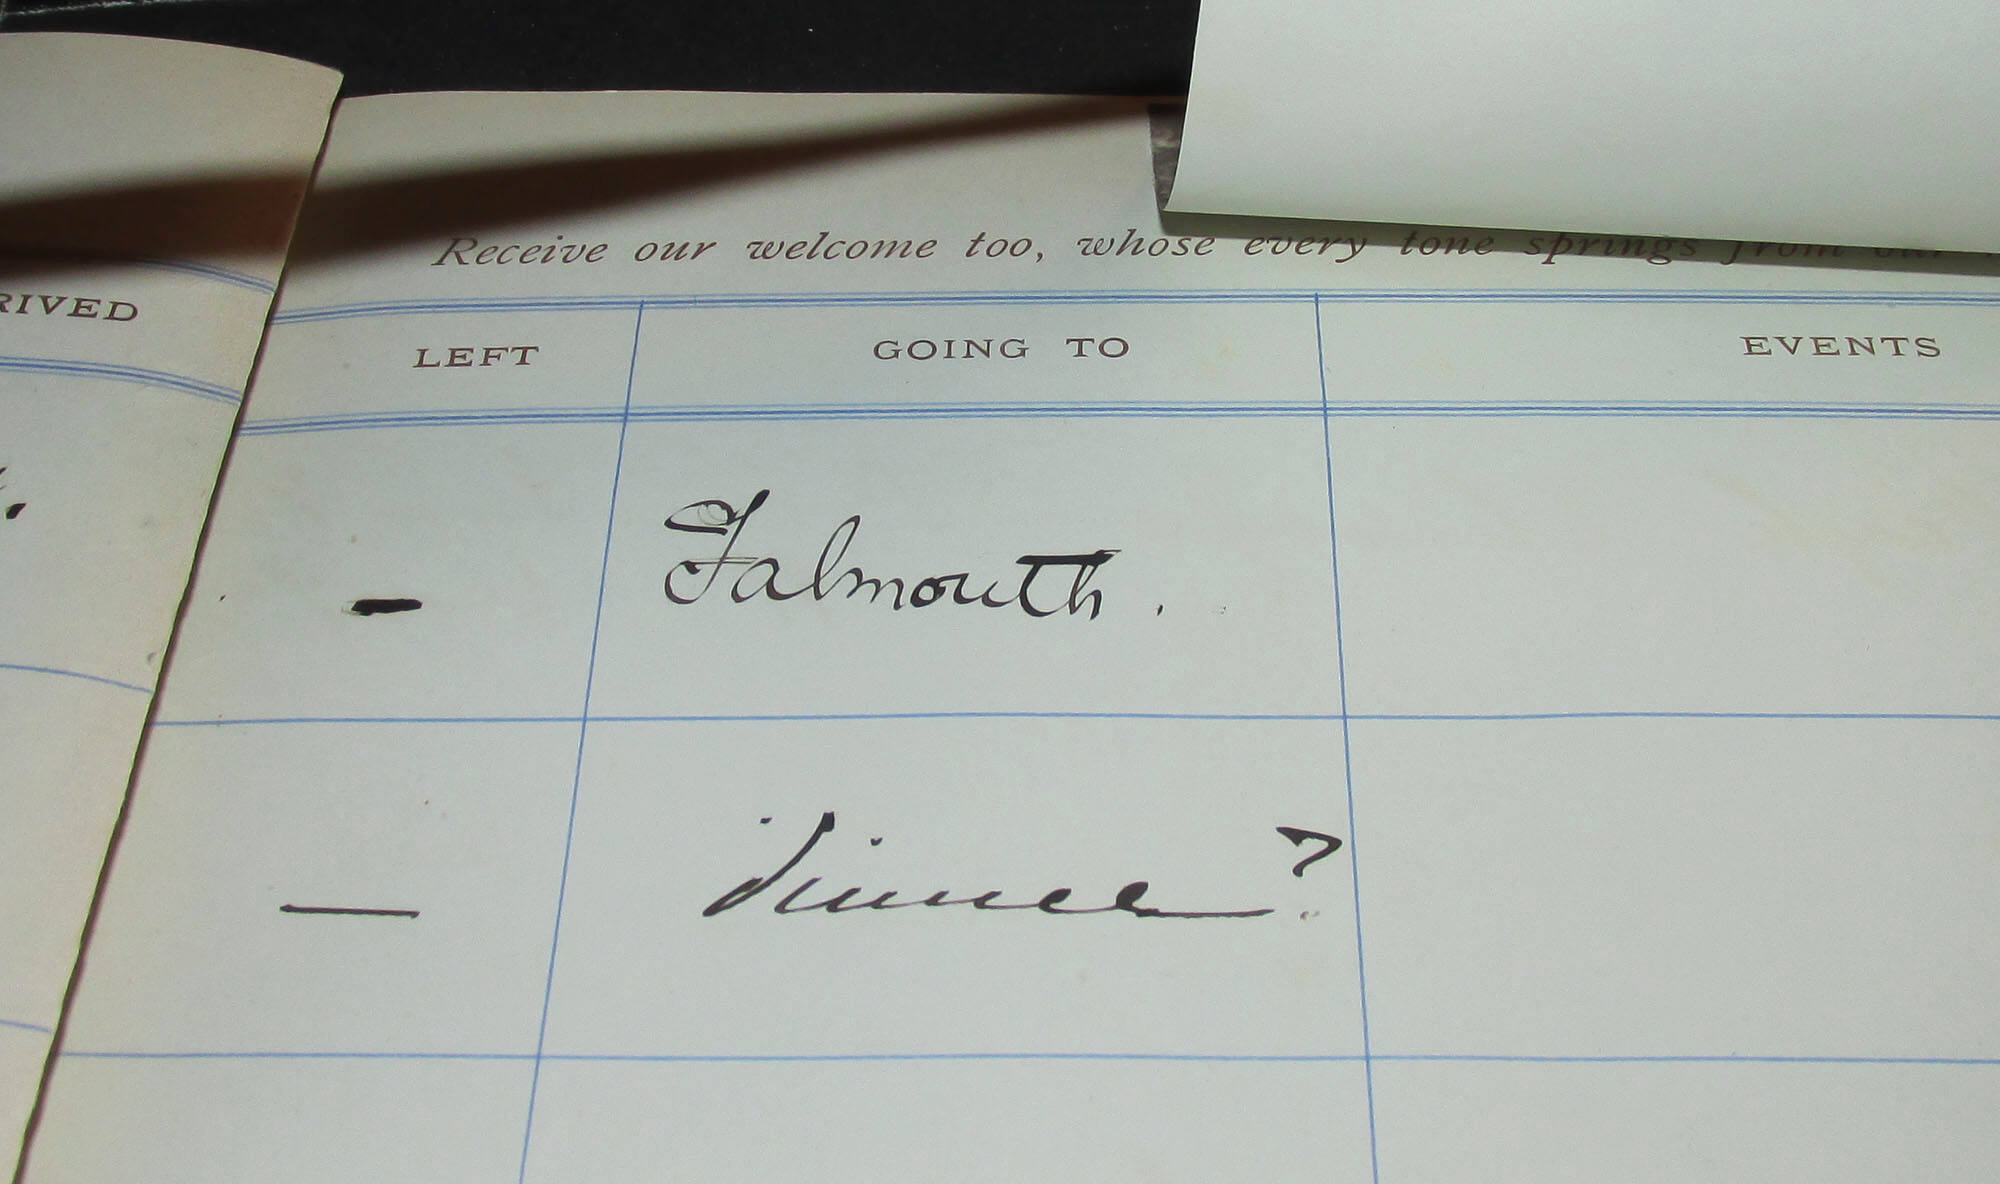 Receive our welcome too, whose every tone springs from our
RIVED
LEFT GOING TO EVENTS
– Falmouth.
—